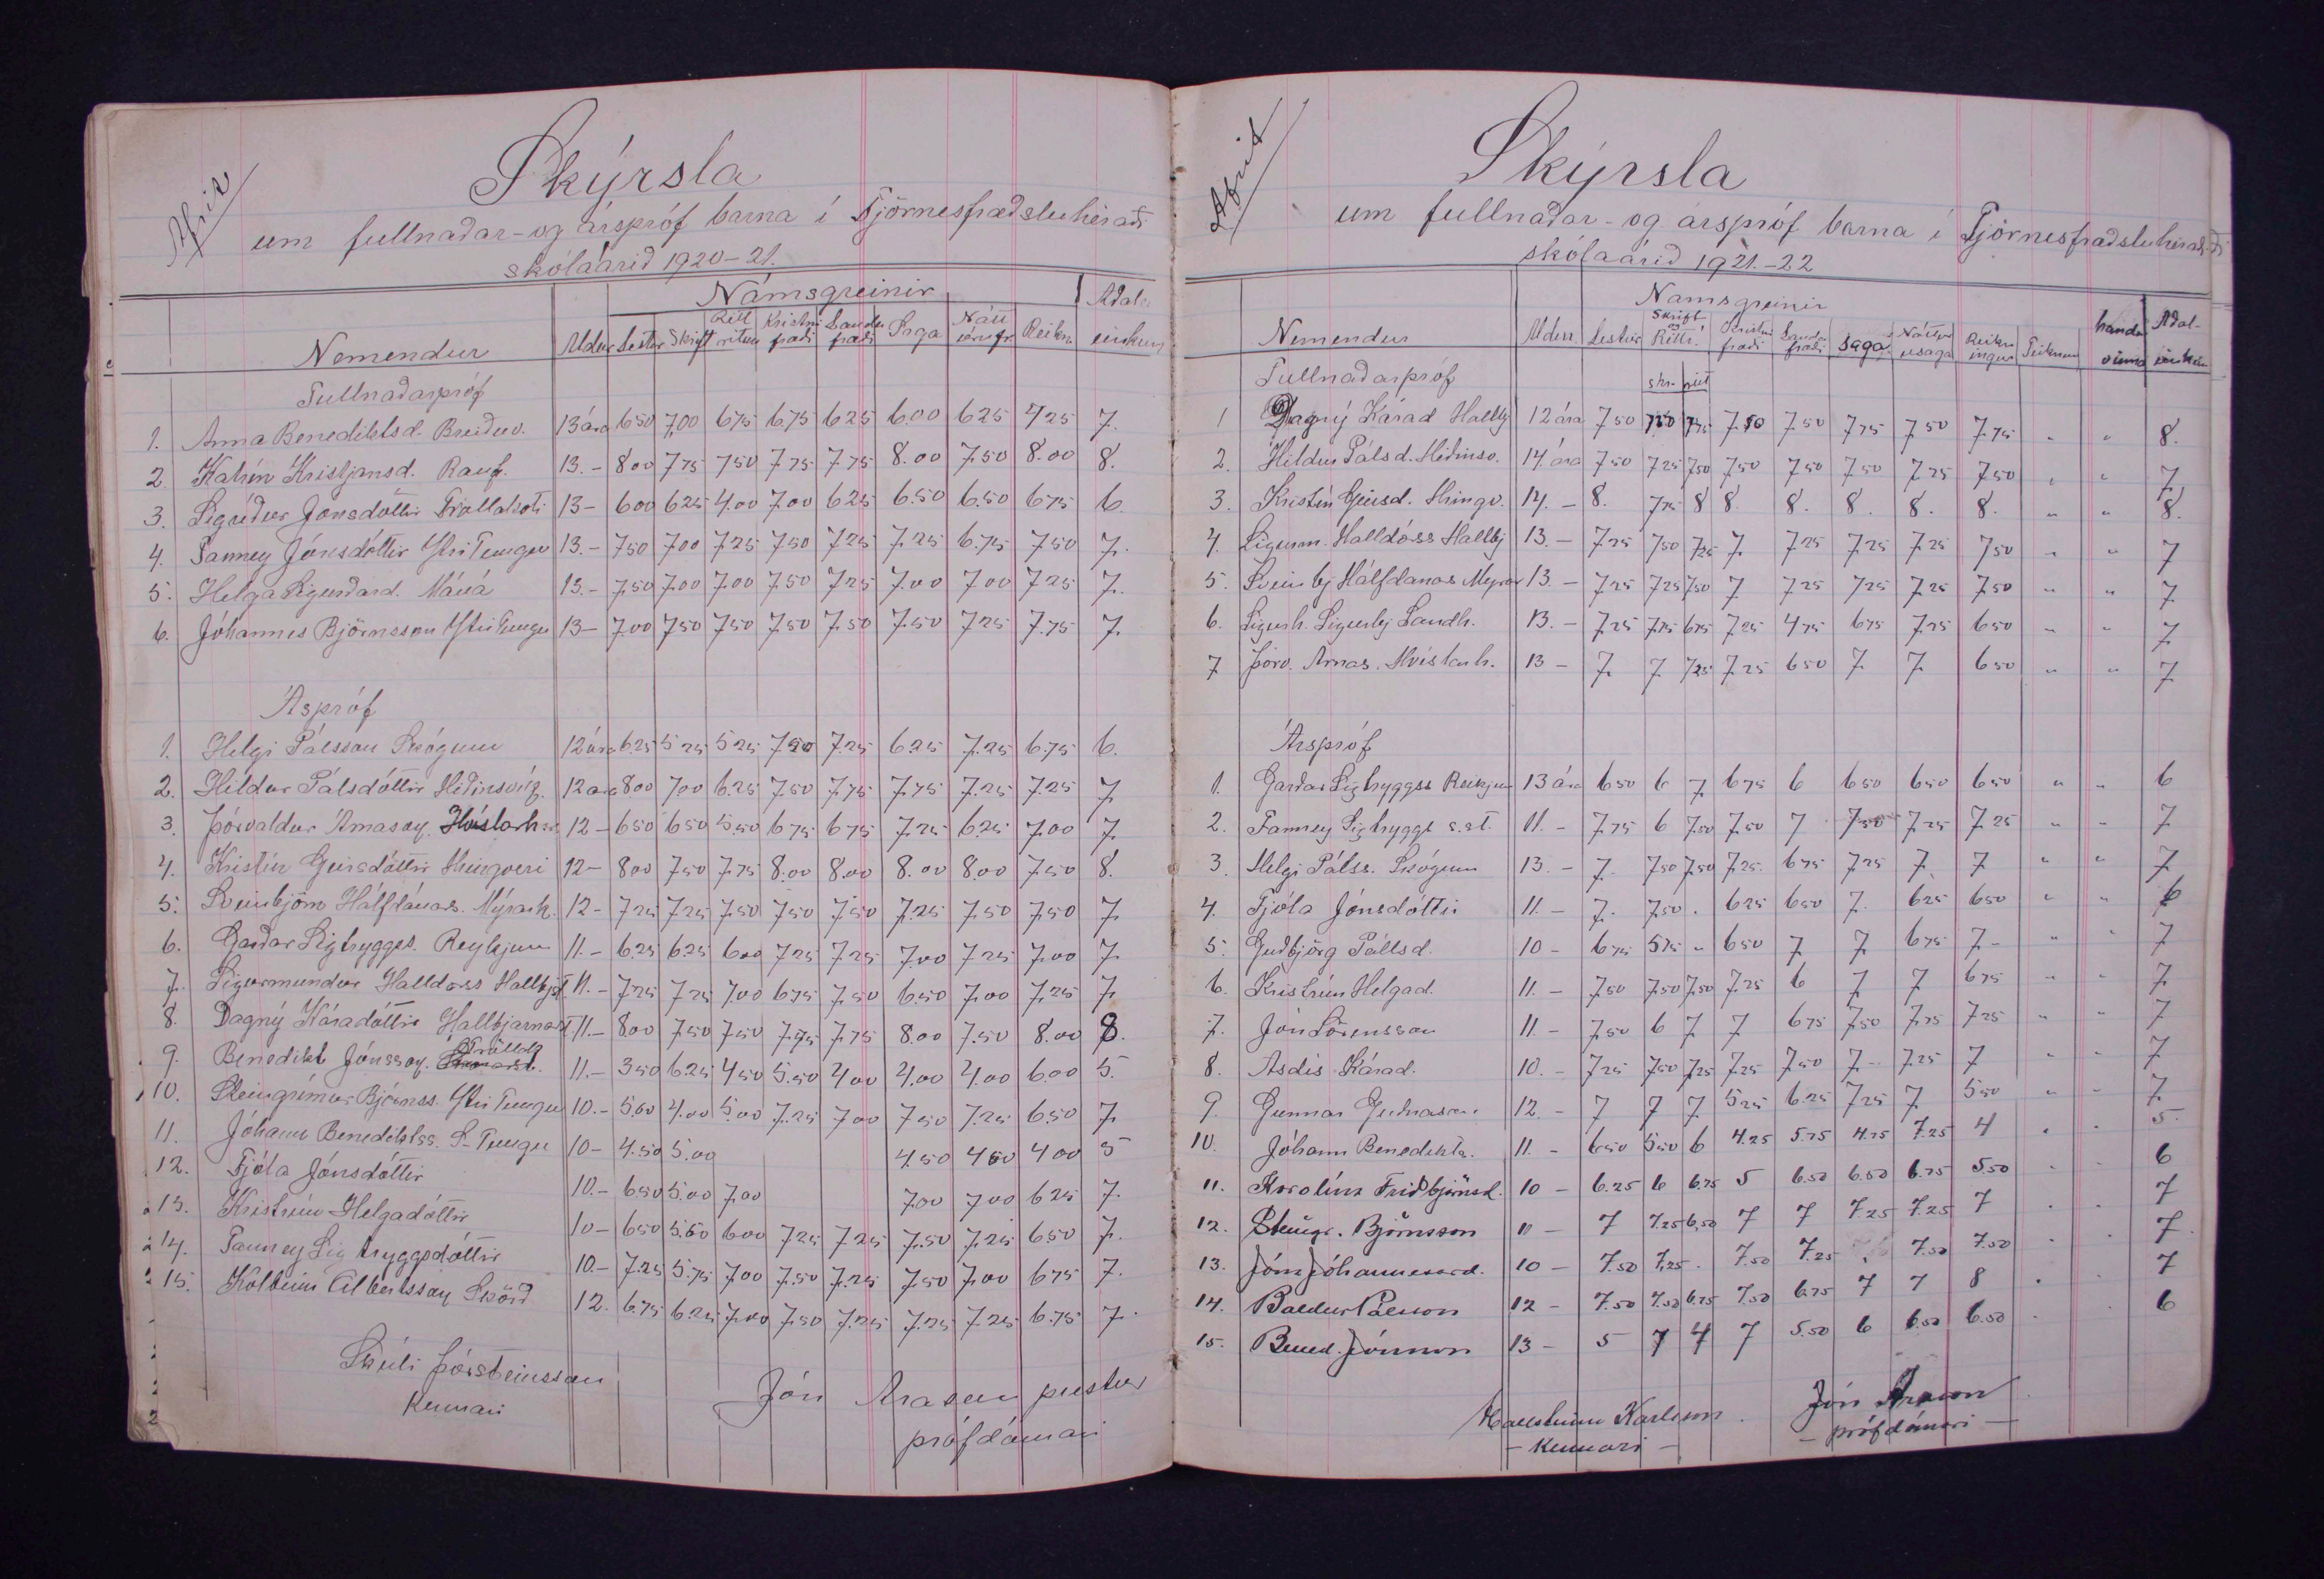 Afrit
Skýrsla
um fullnaðar- og árspróf barna í Tjörnesfræðsluhéraði
skólaárið 1920-21.
Námsgreinir Aðal
Nemendur Aldur Lestur Skrift Rétt ritun Kristni fræði Landa fræði Saga Nátt úrufr. Reikn einkunn
Fullnaðarpróf
1. Anna Benediktsd. Breiðuv. 13 ára 650 7,00 675 6.75 625 6.00 625 725 7.
2. Katrín Kristjansd. Rauf. 13.- 800 775 750 775 775 8.00 7.50 8.00 8.
3. Sigríður Jónsdóttir Tröllakoti 13- 600 625 4.00 7.00 625 6.50 6.50 675 6.
4. Fanney Jónsdóttir Ytri Tungu 13.- 750 700 725 750 725 7.25 6.75 750 7.
5. Helga Sigurðard. Máná 13.- 7.50 7.00 7.00 7.50 725 7.00 700 725 7.
6. Jóhannes Björnsson Ytri Tungu 13- 700 750 750 750 7.50 7.50 725 7.75 7.
Áspróf
1. Helgi Pálsson Skógum 12 ára 6.25 525 525 750 7.25 6.25 7.25 6.75 6.
2. Hildur Pálsdóttir Héðinsvík. 12 ara 800 700 6.25 750 775 7.75 7.25 7.25 7
3. Þórvaldur Árnason Hvístarh 12- 650 650 550 675 675 725 6.25 7.00 7.
4. Kristín Geirsdóttir Hringveri 12- 800 750 7.75 8.00 8.00 8.00 8.00 750 8.
5. Sveinbjörn Hálfdánars. Mýrark. 12- 725 725 750 750 750 7.25 7.50 7.50 7
6. Garðar Sigtryggss. Reykjum 11.- 6.25 6.25 600 725 725 7.00 725 7.00 7.
7. Sigurmundur Halldórss Hallbjst. 11.- 725 725 7.00 675 7.50 6.50 7.00 7.25 7
8. Dagný Káradóttir Hallbjarnarst 11.- 800 750 750 7.75 7.75 8.00 7.50 8.00 8.
9. Benedikt Jónsson. Tröllak 11.- 350 625 450 5.50 400 4.00 4.00 6.00 5.
10. Steingrímur Björnss. Ytri Tungu 10.- 5.50 4.00 5.00 7.25 700 750 7.25 6.50 7.
11. Jóhann Benediktss. S-Tungu 10- 4.50 5.00 4.50 450 400 5
12. Fjóla Jónsdóttir 10.- 650 5.00 7.00 700 700 625 7.
13. Kristrún Helgadóttir 10- 650 5.50 600 725 725 7.50 7.25 650 7.
14. Fanney Sigtryggsdóttir 10.- 7.25 5.75 700 7.50 7.25 750 7.00 675 7.
15. Kolbeinn Albertsson Skörð 12. 6.75 6.25 7.00 7.50 7.25 7.25 7.25 6.75 7.
Skúli Þórsteinsson
Kennari
Jón Arason prestur
prófdómari
Afrit
Skýrsla
um fullnaðar- og árspróf barna í Tjörnesfræðsluhéraði
skólaárið 1921.-22
Namsgreinir
Nemendur Aldur. Lestur Skrift og Réttr. Kristni fræði Landa fræði Saga Náttúru saga Reikn ingur Teiknun handa vinna Aðal- einkun
Fullnaðarpróf skr. rétt
1 Dagný Kárad Hallbj 12 ára 750 750 775 7.50 750 775 750 7.75 " " 8.
2. Hildur Pálsd. Héðinsv. 14. ára 750 725 750 750 750 750 725 750 " " 7
3. Kristín Geirsd. Hringv. 14.- 8. 775 8 8. 8. 8. 8. 8. " " 8.
4. Sigurm. Halldórss Hallbj 13.- 725 750 725 7. 725 725 725 750 " " 7
5. Sveinbj Hálfdanars Myrar 13.- 725 725 750 7 725 725 725 750 " " 7
6. Sigurh. Sigurbj Sandh. 13.- 725 775 675 725 475 675 725 650 " " 7
7 Þórv. Arnas. Hvístarh. 13- 7. 7 725 725 650 7 7. 650 " " 7
Árspróf
1. Garðar Sigtryggss Reikjum 13 ára 650 6 7 675 6 650 650 650 " " 6
2. Fanney Sigtryggs s.st. 11.- 775 6 750 750 7 750 725 725 " " 7
3. Helgi Pálss. Skógum 13.- 7. 750 750 725 675 725 7. 7 " " 7
4. Fjóla Jónsdóttir 11.- 7. 750 . 625 650 7. 625 650 " " 6
5. Guðbjörg Pállsd. 10- 675 575 " 650 7 7 675 7- " " 7
6. Kristrún Helgad. 11.- 750 750 750 725 6 7 7 675 " " 7
7. Jón Sörensson 11.- 750 6 7 7 675 750 775 725 " " 7
8. Asdís Kárad. 10.- 725 750 725 725 750 7- 725 7 " " 7
9. Gunnar Guðnason 12.- 7 7 7 525 6.25 725 7 550 " " 7
10. Jóhann Benedikts. 11.- 650 550 6 4.25 5.75 4.75 7.25 4 . . 5.
11. Karolína Friðbjörnsd. 10- 6.25 6 6.75 5 6.50 6.50 6.75 5.50 . . 6
12. Steingr. Björnsson 11- 7 7.25 6,50 7 7 7.25 7.25 7 . . 7
13. Jóna Jóhannesard. 10- 7.50 7,25 . 7.50 7.25 7.50 7.50 . . 7
14. Baldur Pálsson 12- 7.50 7.50 6.75 7.50 6.75 7 7 8 . . 7
15. Bened. Jónsson 13- 5 7 4 7 5.50 6 6.50 6.50 . . 6
Hallsteinn Karlsson.
- Kennari -
Jón Arason
- prófdómari -